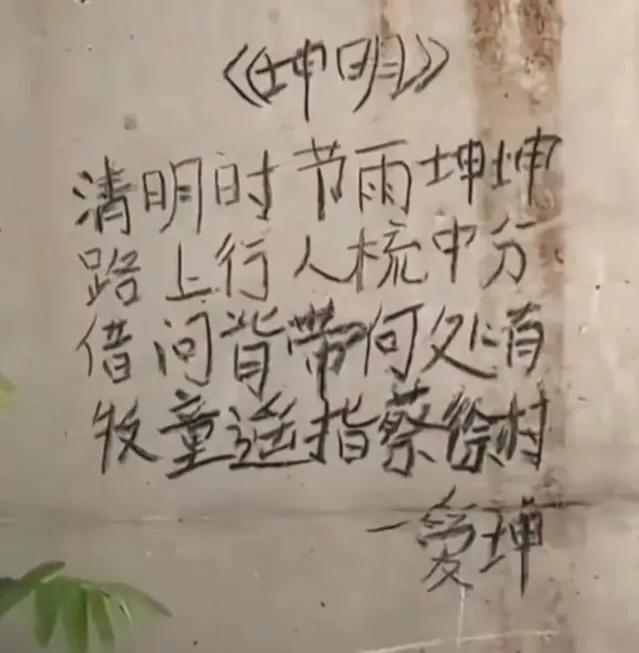 《坤明》
清明时节雨坤坤
路上行人梳中分
借问背带何处有
牧童遥指蔡徐村
一爱坤